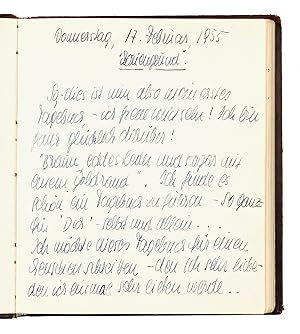 Donnerstag, 17. Februar, 1955
So - dies ist nun also mein erstes
Tagebuch - ich freue mich sehr! Ich bin
ganz glücklich darüber!
"Braun, echtes Leder und sogar mit
einem Goldrand". Ich finde es
schön ein Tagebuch zu führen - so ganz
für "Dich" - selbst und allein . . .
Ich möchte dieses Tagebuch für einen
Menschen schreiben - den ich sehr liebe -
den ich einmal sehr lieben werde . .